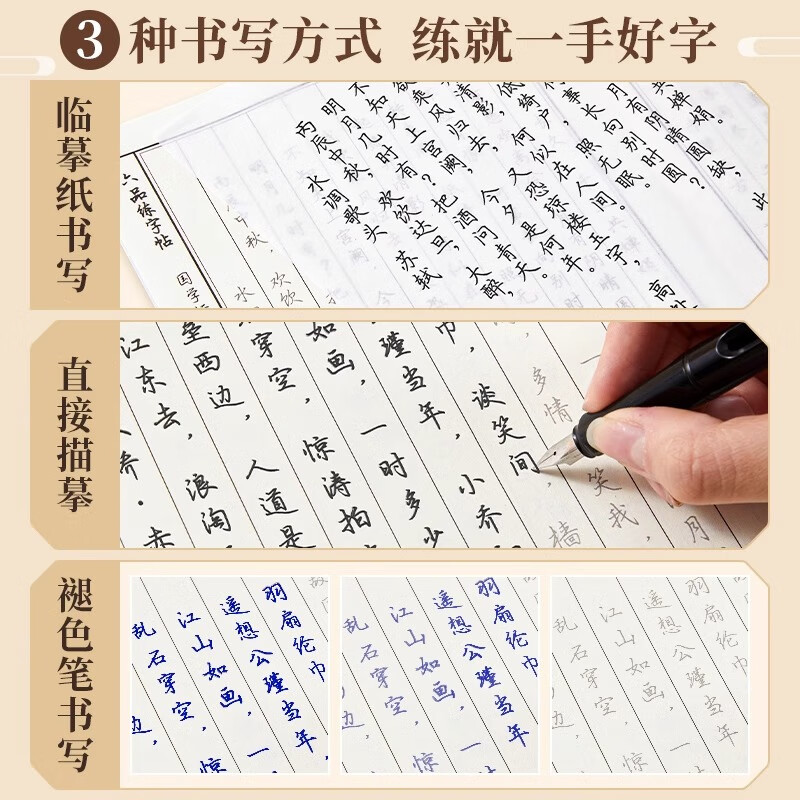 3种书写方式 练就一手好字
临摹纸书写
六品练字帖
国学
水调歌头 苏轼
丙辰中秋，欢饮达旦，大醉，
明月几时有？把酒问青天。
不知天上宫阙，今夕是何年。
欲乘风归去，又恐琼楼玉宇，高处
清影，何似在人间。
低绮户，照无眠。
事长向别时圆？
月有阴晴圆缺，此
共婵娟。
秋，欢饮
水
直接描摹
乔·赤
江东去，浪淘
垒西边，人道是
穿空，惊涛拍
如画，一时多少
瑾当年，小乔
巾，谈笑间，樯
多情
笑我，
月
褪色笔书写
边，
乱石穿空，惊
江山如画，一
遥想公瑾当年，
羽扇纶巾
故
边，
乱石穿空，惊
江山如画，一
遥想公瑾当年，
羽扇纶巾
边，
乱石穿空，惊
江山如画，一
遥想公瑾当年，
羽扇纶巾